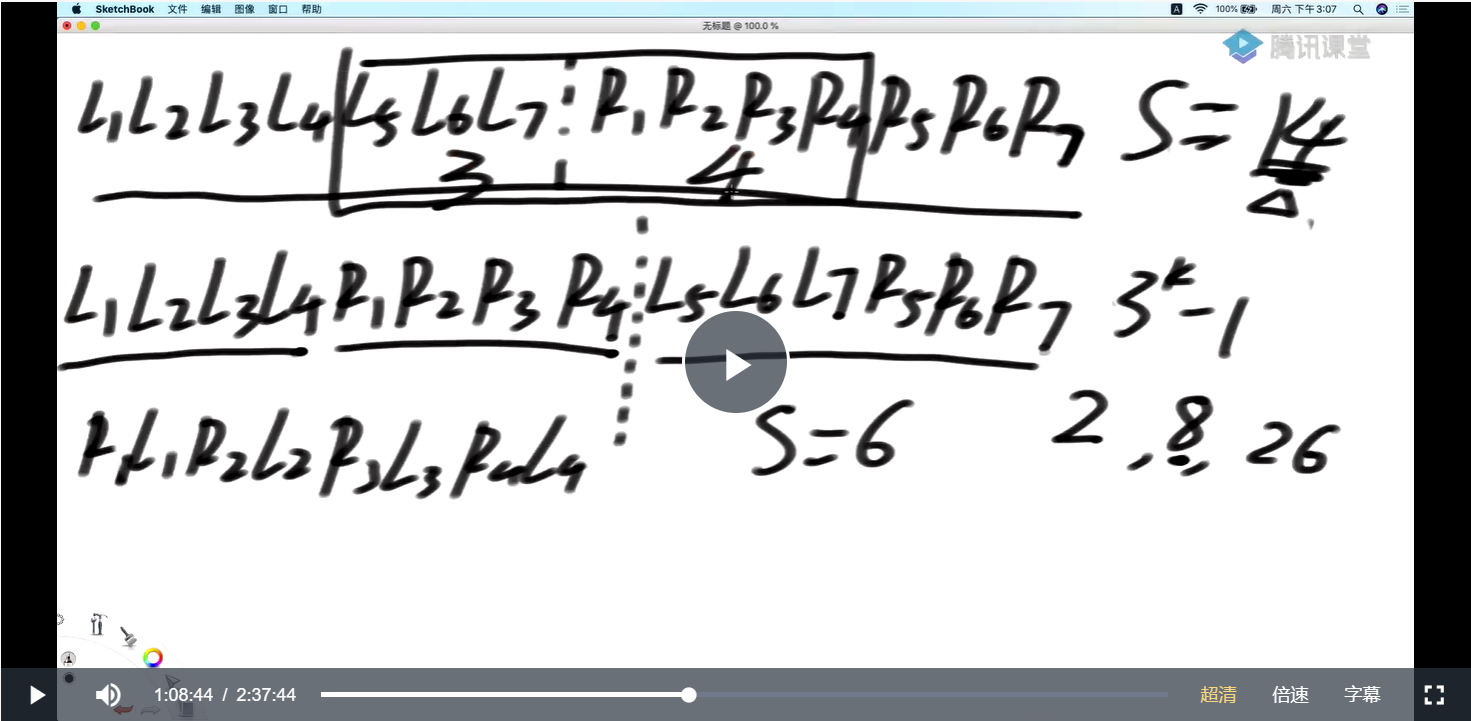 SketchBook 文件 编辑 图像 窗口 帮助 A 100% 周六 下午3:07
无标题 @ 100.0 %
腾讯课堂
L1L2L3L4L5L6L7R1R2R3R4R5R6R7 S=14
3 4
L1L2L3L4R1R2R3R4L5L6L7R5R6R7 3^k-1
R1L1R2L2R3L3R4L4 S=6 2,8,26
1:08:44 / 2:37:44 超清 倍速 字幕